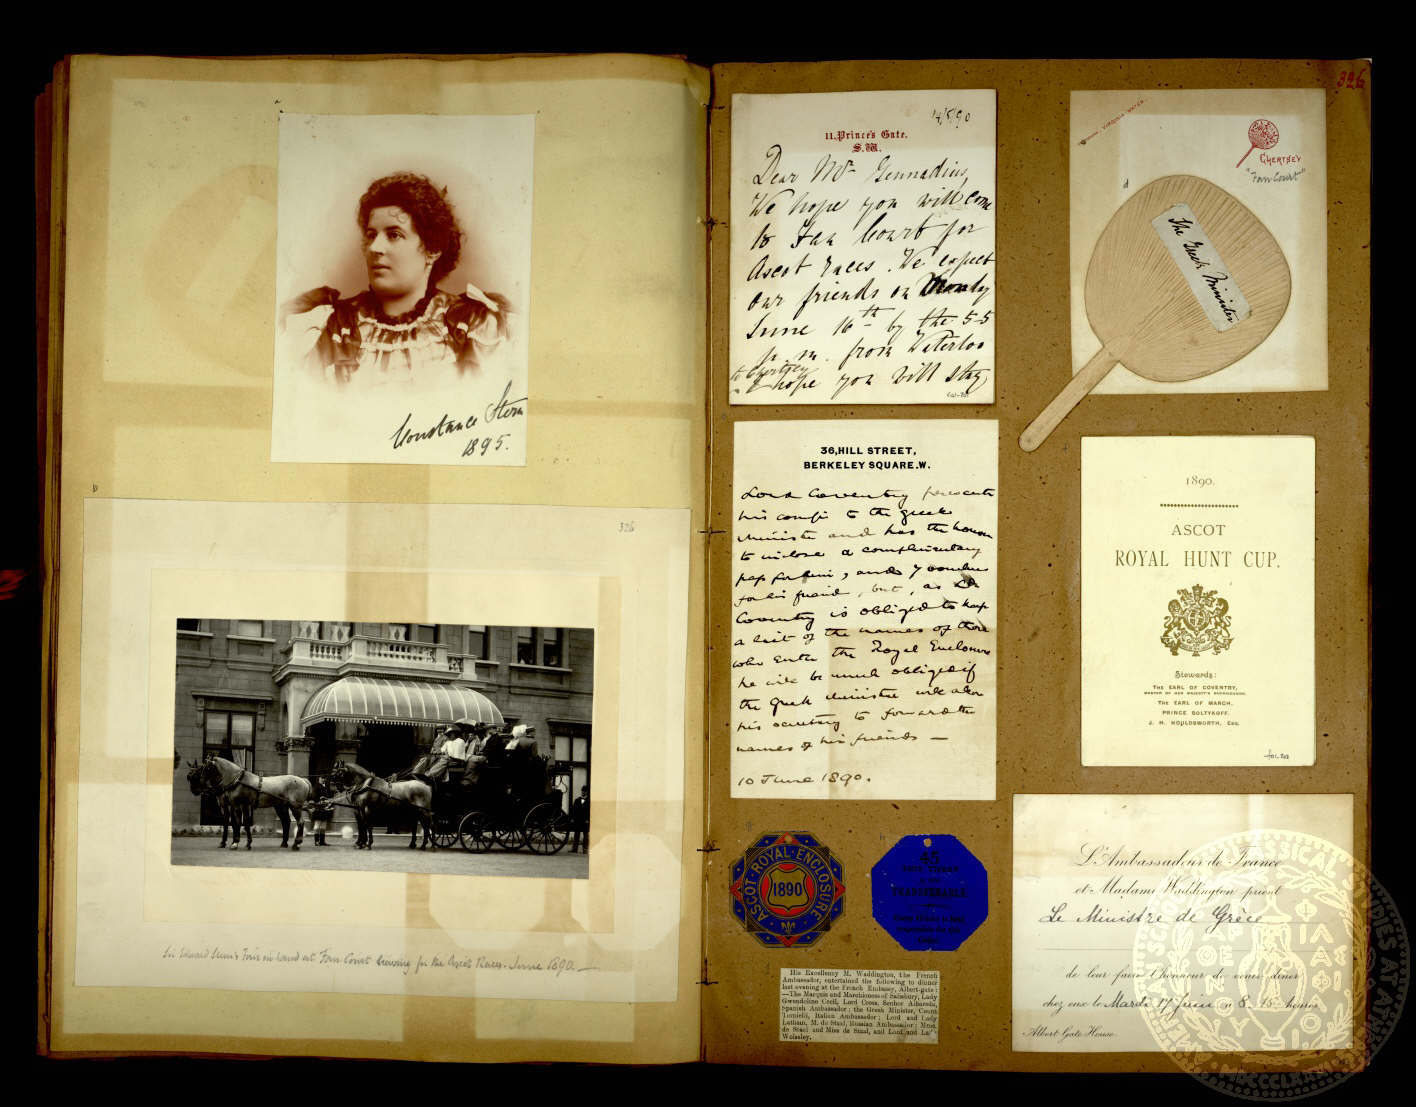 Constance Stern
1895.
326
Sir Edward Stern's Four in hand at Fan Court leaving for the Ascot Races. June 1890
326
11, Prince's Gate.
S.W.
Dear Mr Gennadius,
We hope you will come
to Fan Court for
Ascot races. We expect
our friends on Monday
June 16th by the 5-5
p.m. from Waterloo
to Chertsey
I hope you will stay
VIRGINIA WATER.
CHERTSEY
"Fan Court"
The Greek Minister
36, HILL STREET,
BERKELEY SQUARE. W.
Lord Coventry presents
his compts to the Greek
Minister and has the honour
to inclose a complimentary
pass for him, and 7 vouchers
for his friends, but, as Ld
Coventry is obliged to keep
a list of the names of those
who enter the Royal Enclosure
he will be much obliged if
the Greek Minister will allow
his secretary to forward the
names of his friends —
10 June 1890.
1890.
ASCOT
ROYAL HUNT CUP.
Stewards:
THE EARL OF COVENTRY,
MASTER OF HER MAJESTY'S BUCKHOUNDS.
THE EARL OF MARCH.
PRINCE SOLTYKOFF.
J. H. HOULDSWORTH, ESQ.
ASCOT · ROYAL · ENCLOSURE
1890
45
THIS TICKET
TRANSFERABLE
His Excellency M. Waddington, the French
Ambassador, entertained the following to dinner
last evening at the French Embassy, Albert-gate:
—The Marquis and Marchioness of Salisbury, Lady
Gwendoline Cecil, Lord Cross, Senhor Albareda,
Spanish Ambassador; the Greek Minister, Count
Tornielli, Italian Ambassador; Lord and Lady
Lathom, M. de Staal, Russian Ambassador; Mme.
de Staal and Miss de Staal, and Lord and La
Wolseley.
L'Ambassadeur de France
et Madame Waddington prient
Le Ministre de Grèce
de leur faire l'honneur de venir dîner
chez eux le Mardi 17 Juin à 8.15 heures
Albert Gate House.